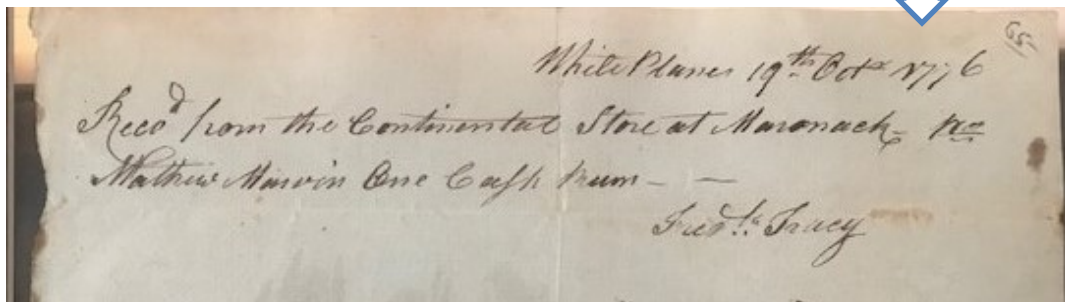 White Planes 19th Octr 1776
Recd from the Continental Store at Maronack pr
Mathew Marvin One Cask Rum — —
Fredk. Tracy